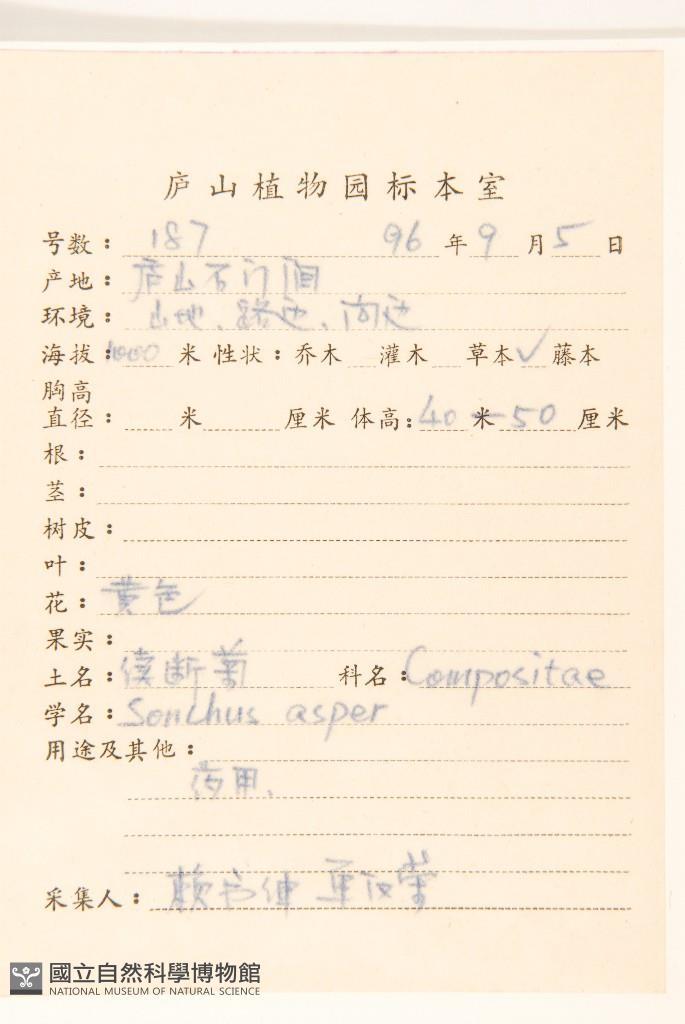 庐山植物园标本室
号数: 187 96 年 9 月 5 日
产地: 庐山石门涧
环境: 山地、路边、沟边
海拔: 1000 米 性状: 乔木 灌木 草本 ✓ 藤本
胸高
直径: 米 厘米 体高: 40 米 — 50 厘米
根:
茎:
树皮:
叶:
花: 黄色
果实:
土名: 续断菊 科名: Compositae
学名: Sonchus asper
用途及其他:
药用、
采集人: 赖书绅
國立自然科學博物館
NATIONAL MUSEUM OF NATURAL SCIENCE